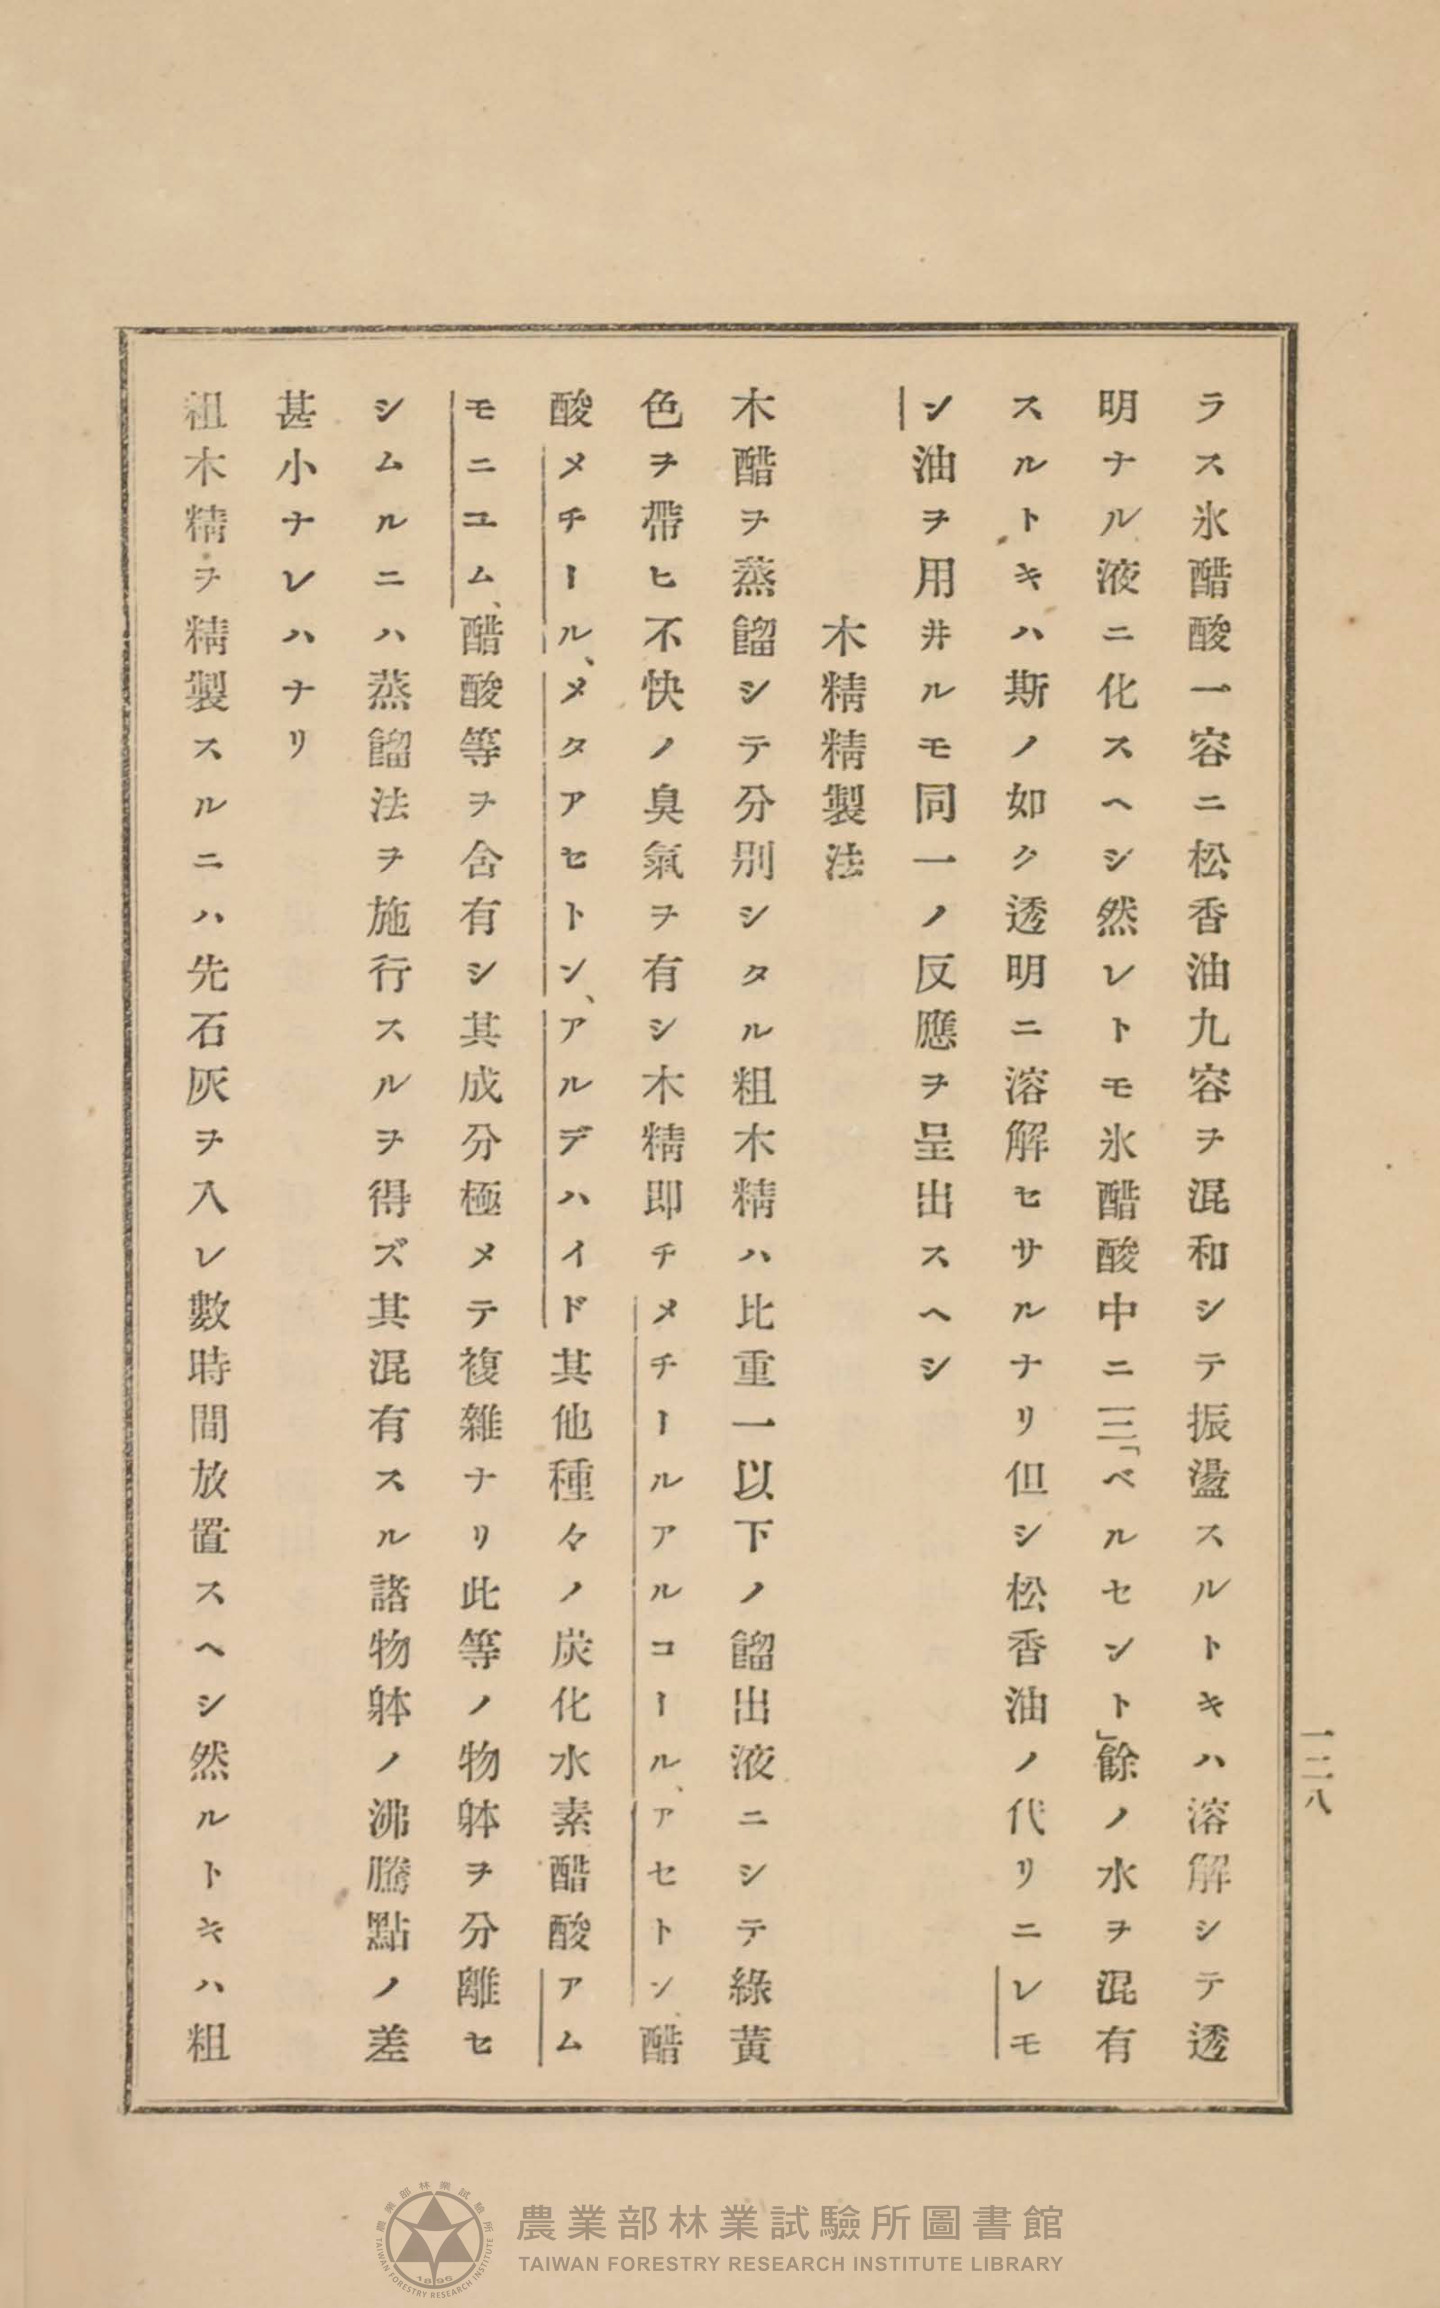 ラス氷醋酸一容ニ松香油九容ヲ混和シテ振盪スルトキハ溶解シテ透
明ナル液ニ化スヘシ然レトモ氷醋酸中ニ三「ベルセント」餘ノ水ヲ混有
スルトキハ斯ノ如ク透明ニ溶解セサルナリ但シ松香油ノ代リニレモ
ン油ヲ用井ルモ同一ノ反應ヲ呈出スヘシ
木精精製法
木醋ヲ蒸餾シテ分別シタル粗木精ハ比重一以下ノ餾出液ニシテ綠黃
色ヲ帶ヒ不快ノ臭氣ヲ有シ木精即チメチールアルコール、アセトン、醋
酸メチール、メタアセトン、アルデハイド其他種々ノ炭化水素醋酸アム
モニユム、醋酸等ヲ含有シ其成分極メテ複雜ナリ此等ノ物躰ヲ分離セ
シムルニハ蒸餾法ヲ施行スルヲ得ズ其混有スル諸物躰ノ沸騰點ノ差
甚小ナレハナリ
粗木精ヲ精製スルニハ先石灰ヲ入レ數時間放置スヘシ然ルトキハ粗
一二八
農業部林業試驗所圖書館
TAIWAN FORESTRY RESEARCH INSTITUTE LIBRARY
農業部林業試驗所
TAIWAN FORESTRY RESEARCH INSTITUTE
1896